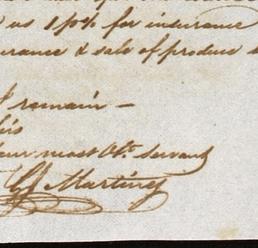 us 1 p% for insurance
urance & sale of produce
I remain —
Sirs
Your most Obt. Servant
Martiny